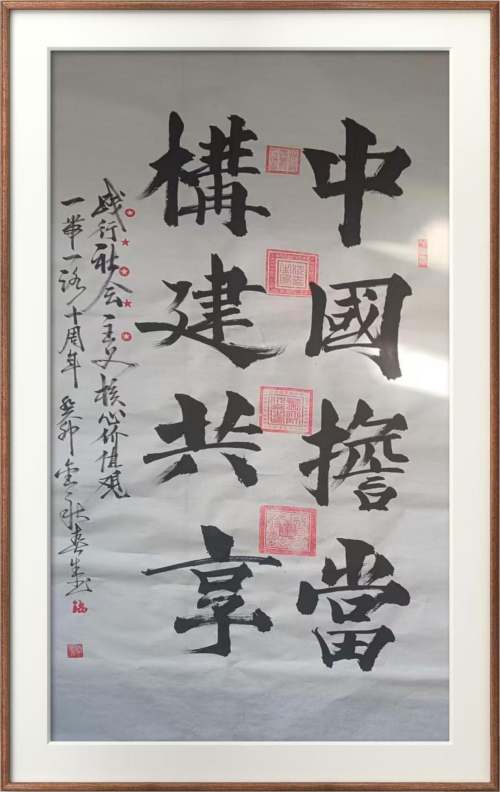 中國擔當
構建共享
践行社会主义核心价值观
一带一路十周年 癸卯金秋春生